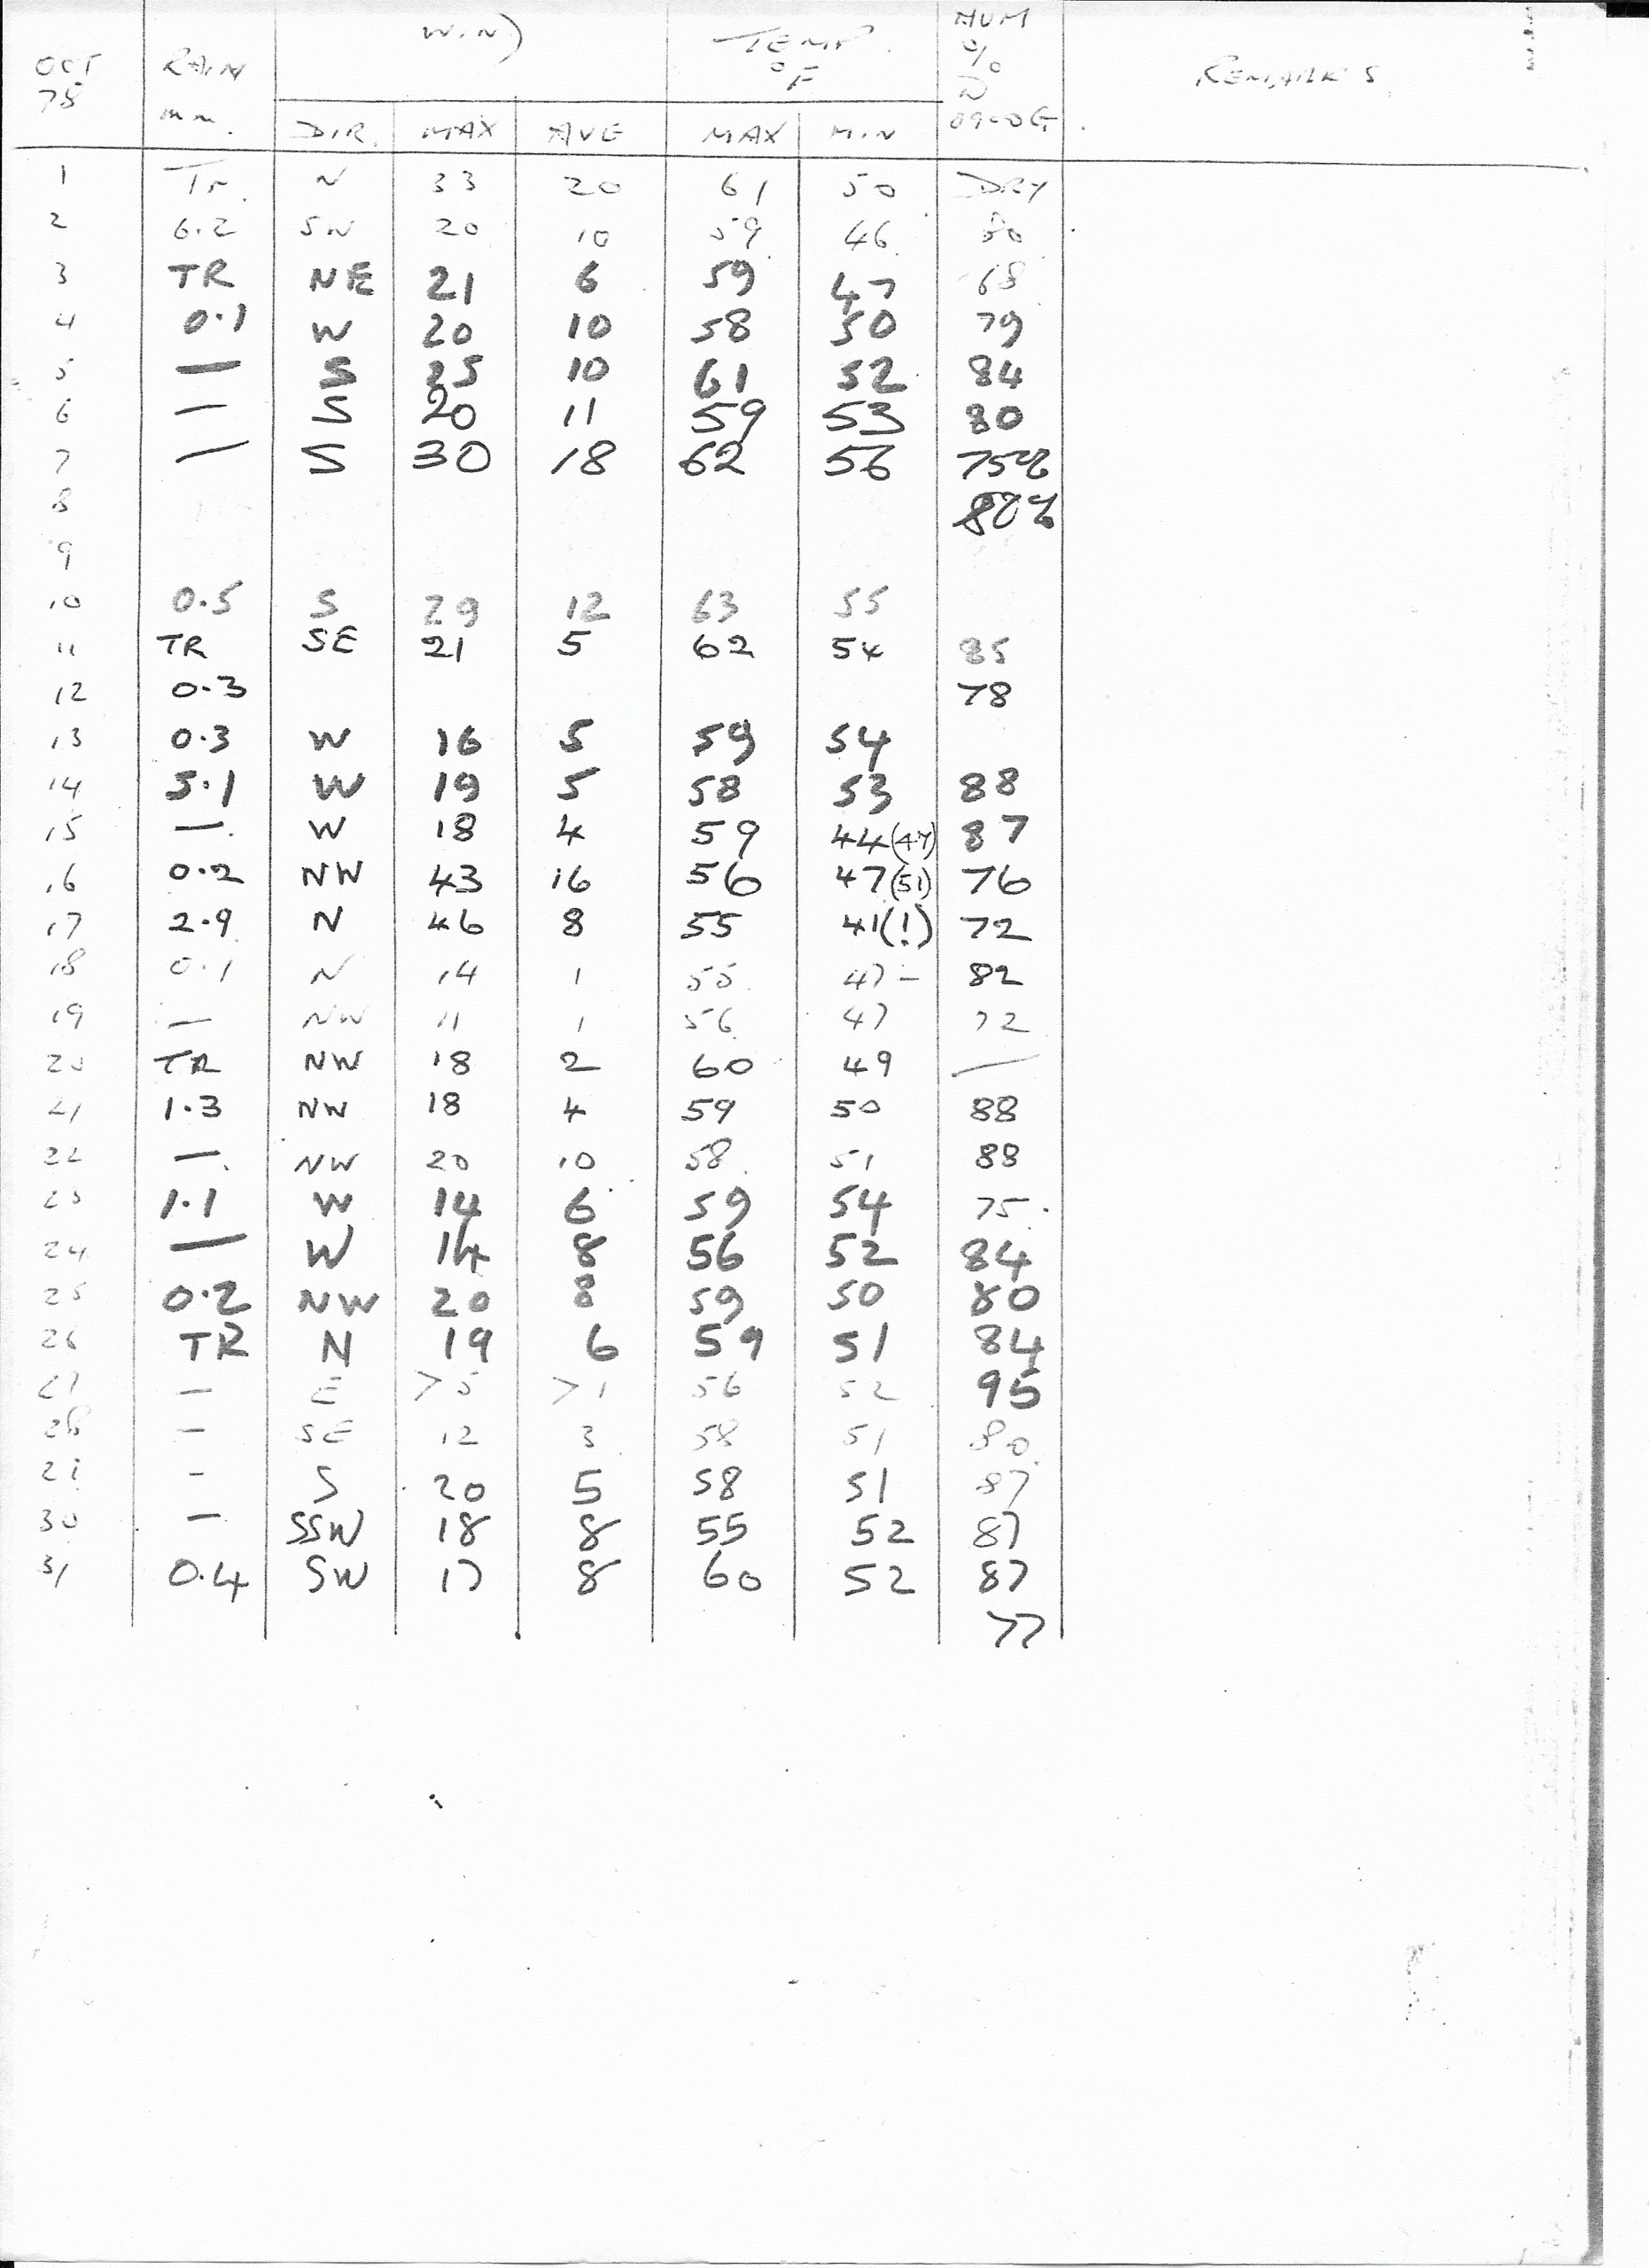 OCT 78 RAIN mm. WIND TEMP. °F HUM % D 0900G REMARKS
DIR. MAX AVE MAX MIN
1 Tr. N 33 20 61 50 DRY
2 6.2 SW 20 10 59 46 80
3 TR NE 21 6 59 47 68
4 0.1 W 20 10 58 50 79
5 — S 25 10 61 52 84
6 — S 20 11 59 53 80
7 — S 30 18 62 56 75%
8 80%
9
10 0.5 S 29 12 63 55
11 TR SE 21 5 62 54 85
12 0.3 78
13 0.3 W 16 5 59 54
14 5.1 W 19 5 58 53 88
15 — W 18 4 59 44(47) 87
16 0.2 NW 43 16 56 47(51) 76
17 2.9 N 46 8 55 41(!) 72
18 0.1 N 14 1 55 47- 82
19 — NW 11 1 56 47 72
20 TR NW 18 2 60 49 —
21 1.3 NW 18 4 59 50 88
22 — NW 20 10 58 51 88
23 1.1 W 14 6 59 54 75
24 — W 14 8 56 52 84
25 0.2 NW 20 8 59 50 80
26 TR N 19 6 59 51 84
27 — E >5 >1 56 52 95
28 — SE 12 3 58 51 80
29 - S 20 5 58 51 87
30 — SSW 18 8 55 52 87
31 0.4 SW 17 8 60 52 87
77